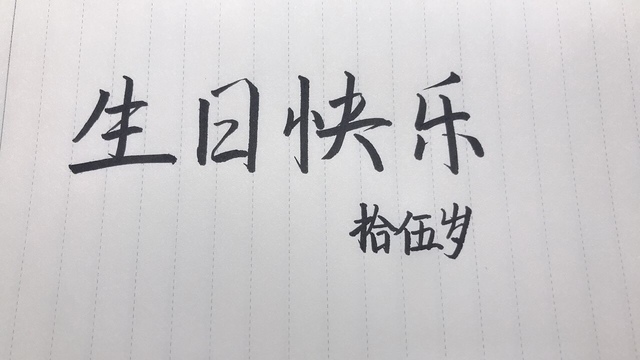 生日快乐
拾伍岁